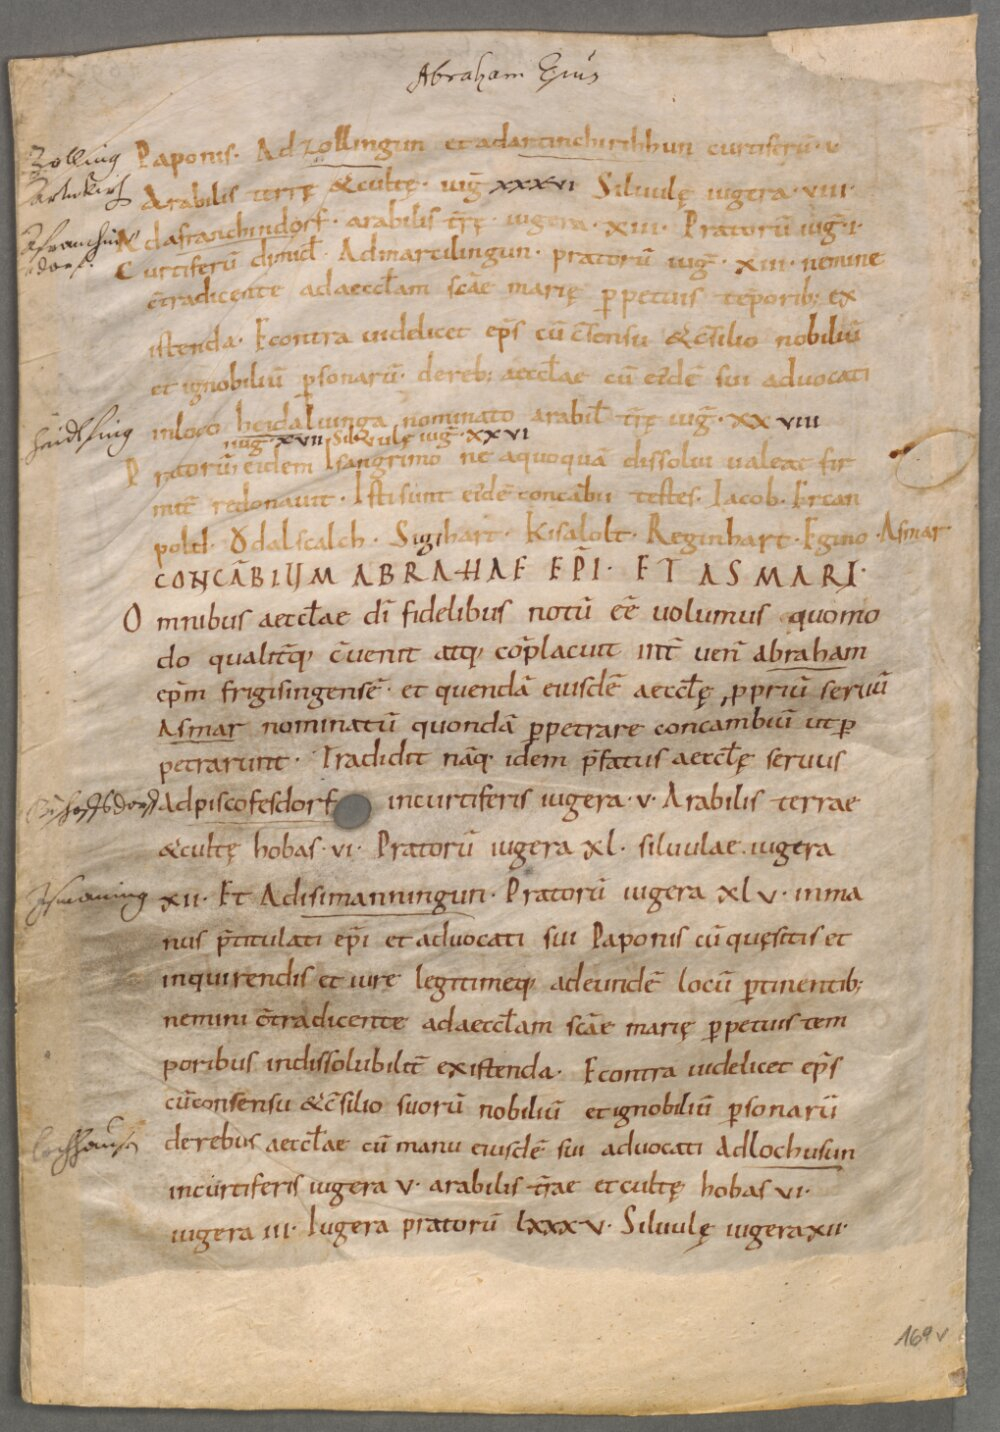 Abraham Ep̄us
Zolling
Paponis· Ad zollingun et adartinchirihhun curtiferū· v
Artnkirch
Arabilis terrę &cultę· iug̅ xxxvi Siluulę iugera· viii·
Adafranchindorf· arabilis tr̄ę· iugera· xiii· Pratorū iug̅·i·
Curtiferū dimid̅· Admartilingun· pratorū iug̅· xiii· nemine
c̄tradicente adaeccl̅am sc̄ae marię p̱petuis tēporib; ex
istenda· Econtra uidelicet ep̄s cū c̄sensu &c̄silio nobiliū
et ignobiliū p̱sonarū· dereb; aeccl̅ae cū eidē sui advocati
haidlfing
inloco heidaluinga nominato arabil̅ tr̄ę iug̅· xx viii
iug̅ xvii Siluulę iug̅· xxvi
Pratorū eidem Isangrimo ne aquoquā dissolui ualeat fir
mit̄ redonauit· Isti sunt eidē concābii testes· Iacob· Ercan
pold· Odalscalch· Sigihart· Kisalolt· Reginhart· Egino· Asmar
CONCĀBIUM ABRAHAE EP̄I· ET ASMARI·
Omnibus aeccl̅ae dī fidelibus notū eē uolumus quomo
do qualit̄q; c̄uenit atq; cōplacuit int̄ uen̄ abraham
ep̄m frigisingensē· et quendā eiusdē aeccl̅ę p̱priū seruū
Asmar nominatū quondā p̱petrare concambiū ut p̱
petrarunt· Tradidit nāq; idem p̄fatus aeccl̅ę seruus
Adpiscofesdorf incurtiferis iugera· v· Arabilis terrae
&cultę hobas· vi· Pratorū iugera xl· siluulae iugera
Ismaning
xii· Et Adisimanningun· Pratorū iugera xl v· inma
nus p̄titulati ep̄i et advocati sui Paponis cū quęsitis et
inquirendis et iure legitimeq; adeundē locū p̱tinentib;
nemini c̄tradicente adaeccl̅am sc̄ae marię p̱petuis tem
poribus indissolubilit̄ existenda· Econtra uidelicet ep̄s
cūconsensu &c̄silio suorū nobiliū et ignobiliū p̱sonarū
lochhausn
derebus aeccl̅ae cū manu eiusdē sui advocati Adlochusun
incurtiferis iugera v· arabilis tr̄ae et cultę hobas vi·
iugera iii· Iugera pratorū lxxx v· Siluulę iugera xii·
169v